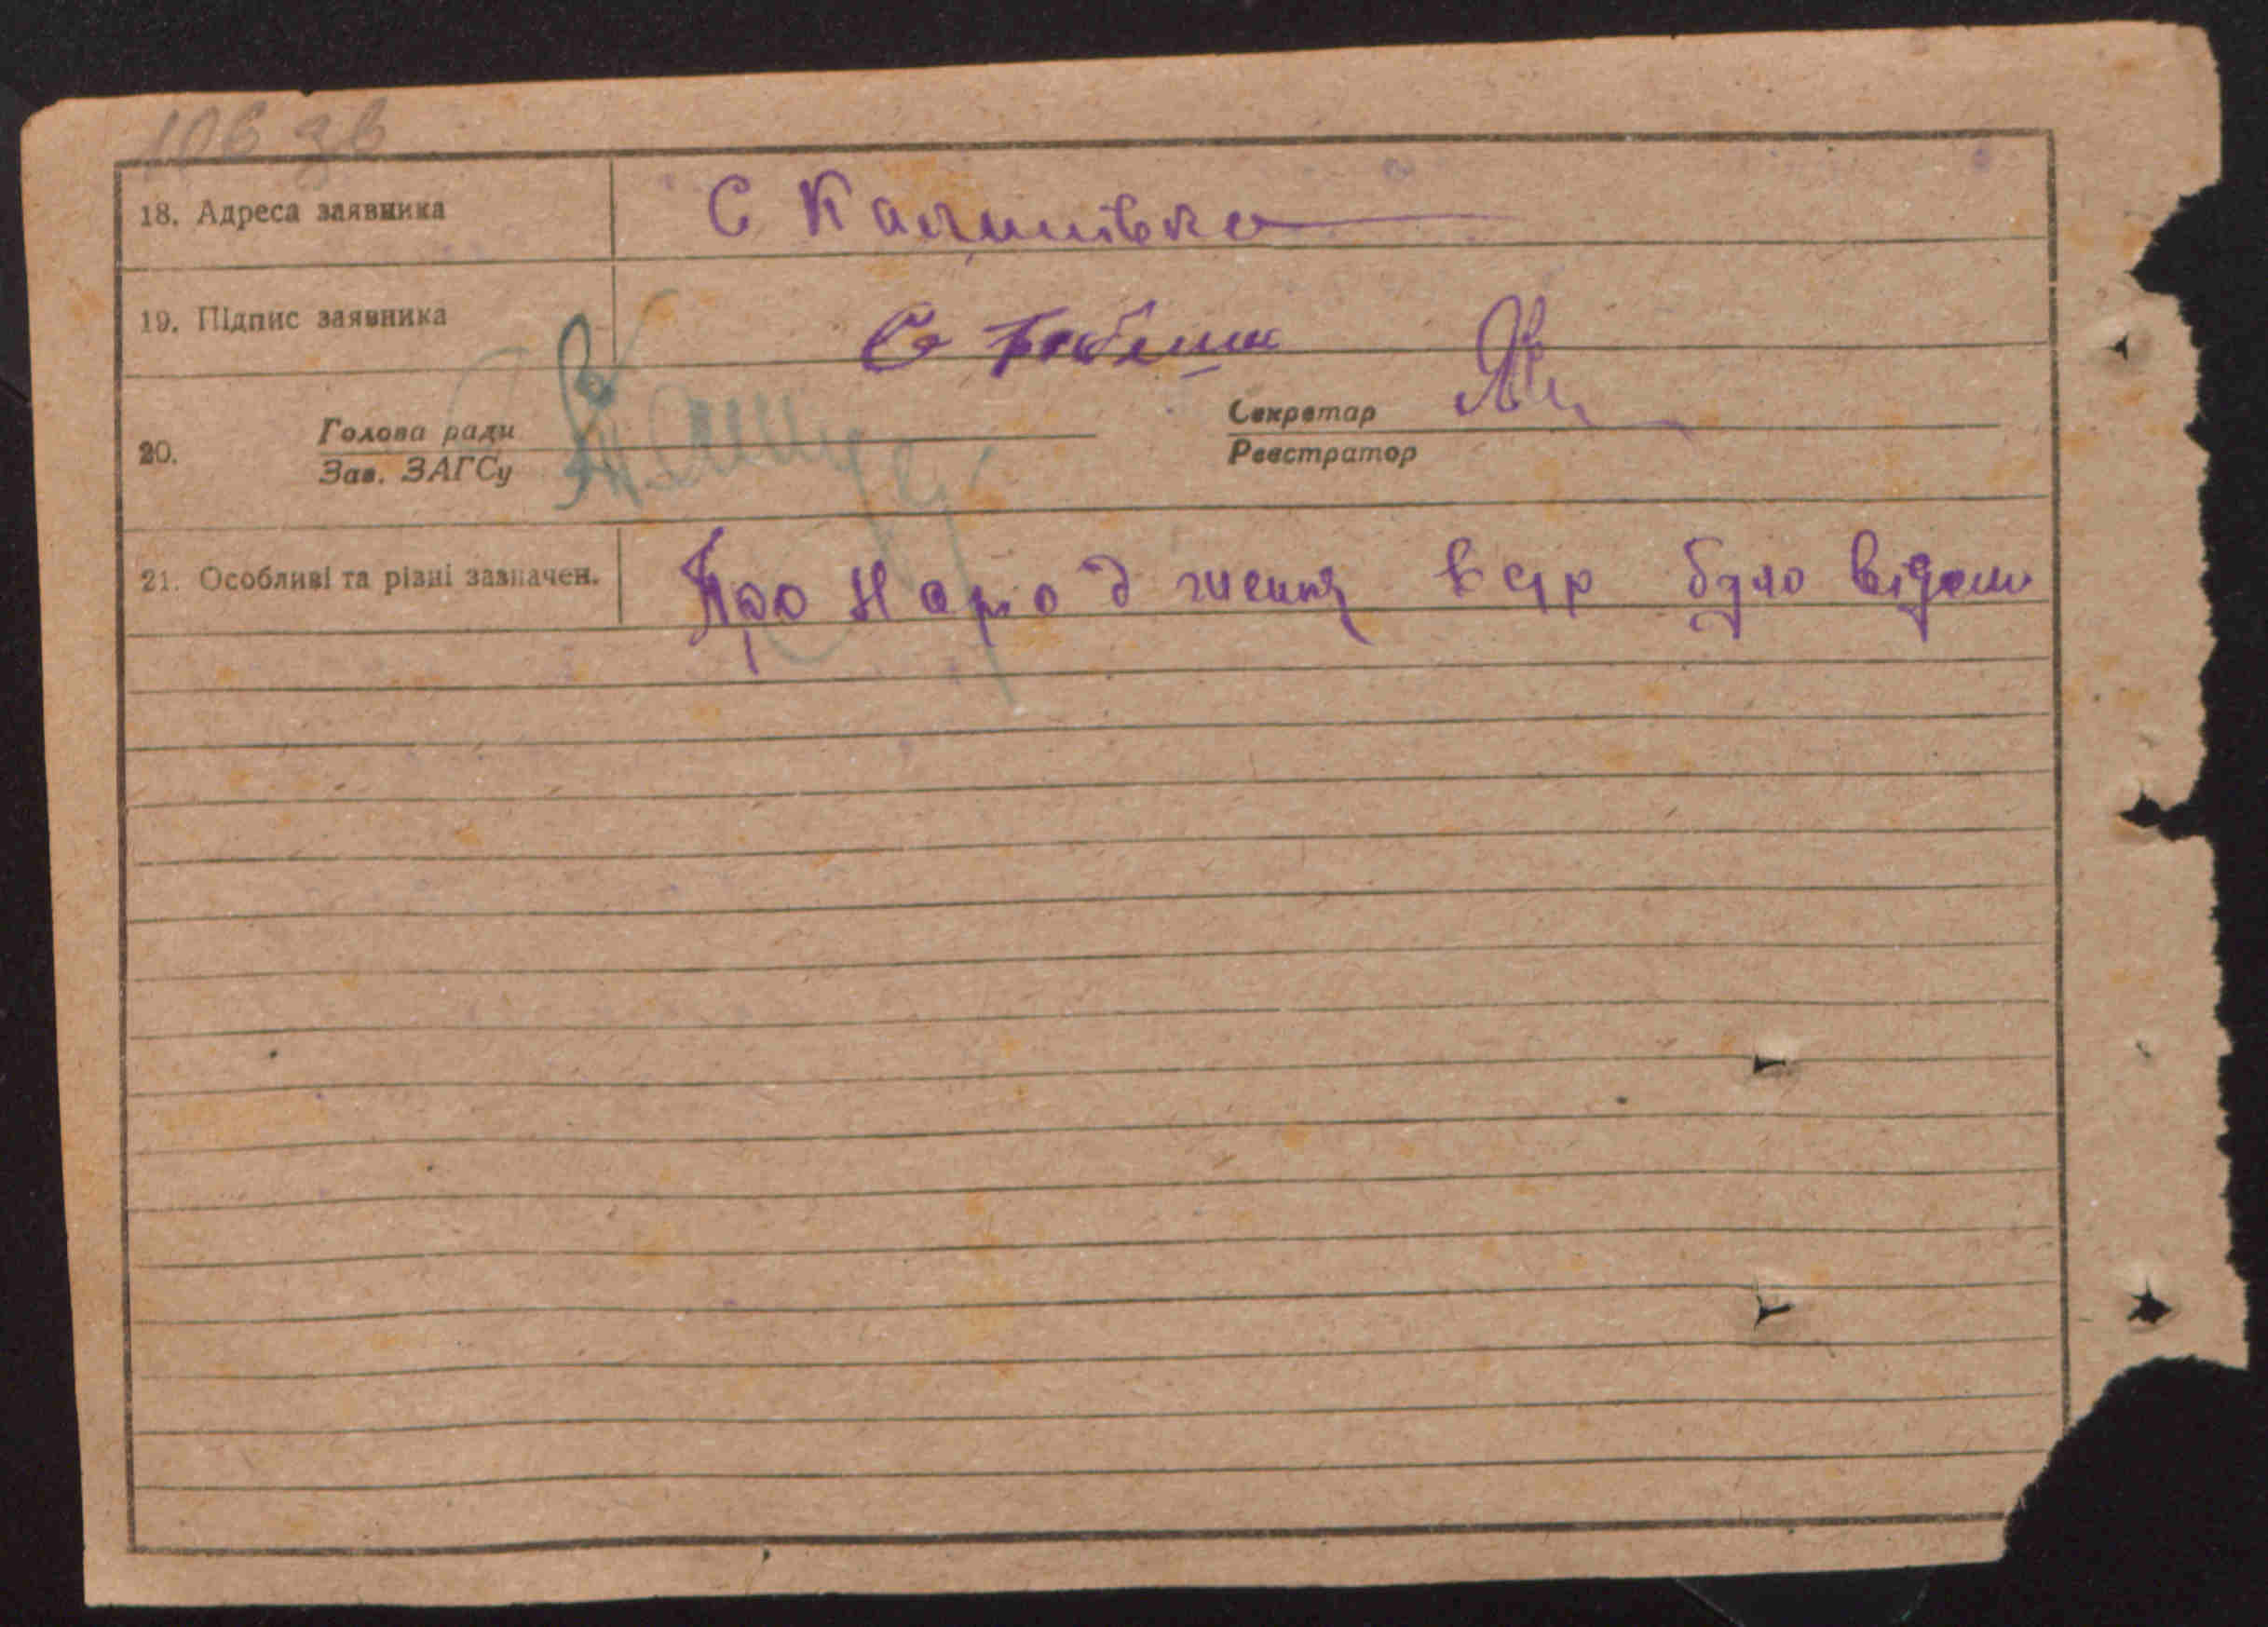 106 зв
18. Адреса заявника С Калинівка
19. Підпис заявника
20. Голова ради Секретар
Зав. ЗАГСу Реєстратор
21. Особливі та різні зазначен. Про Народження було відом